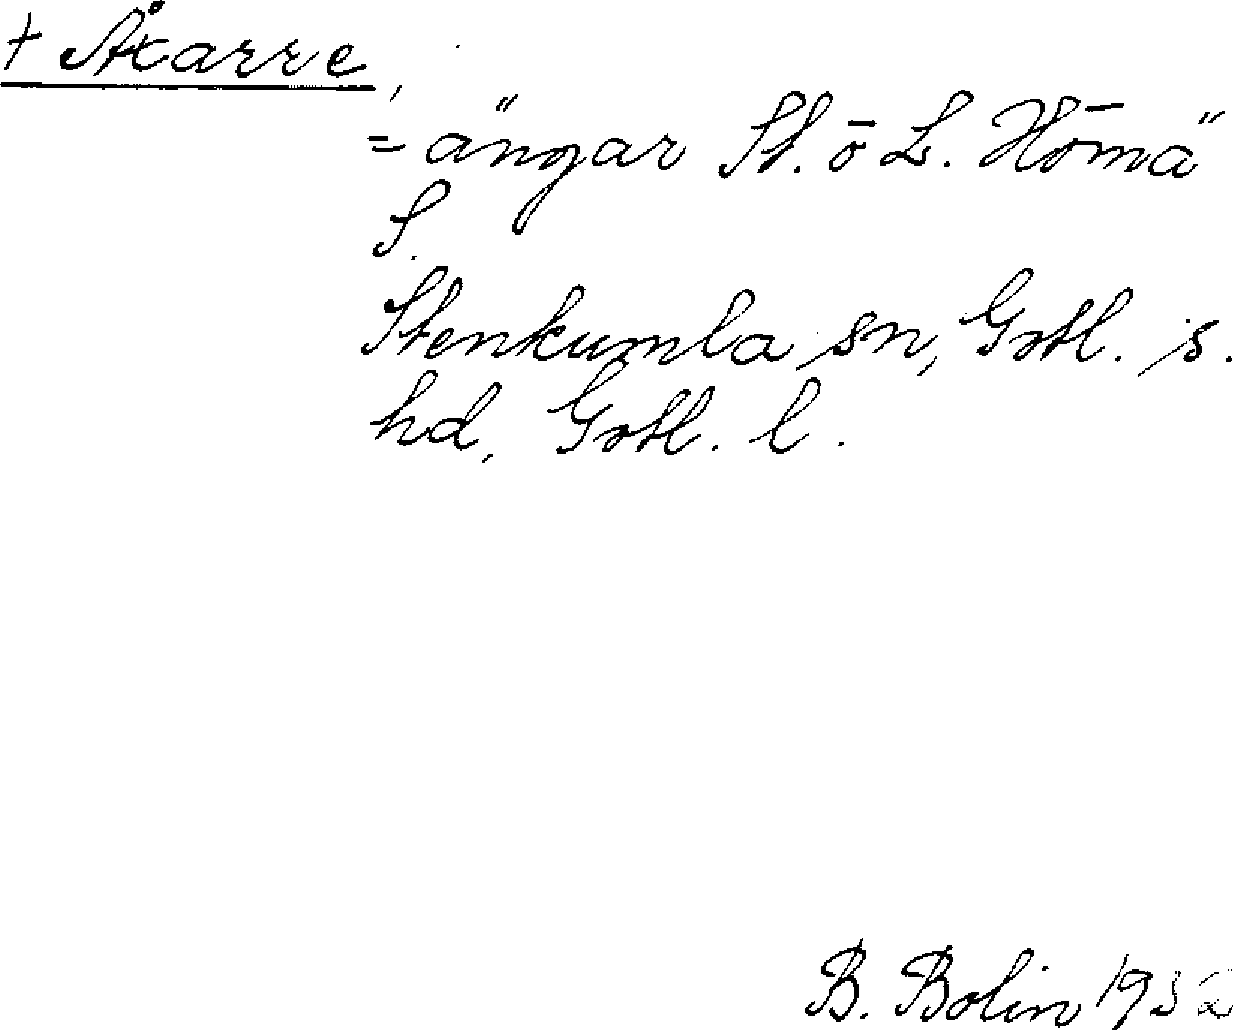 + Åkarre,
= ängar St. ō L. Hōmä
S.
Stenkumla sn, Gotl. s.
hd, Gotl. l.
B. Bolin 1932